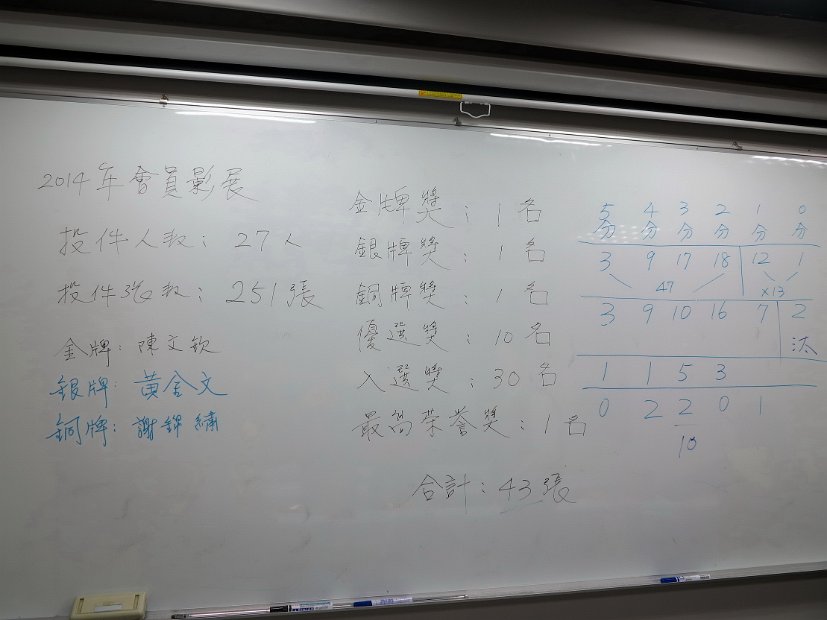 2014年會員影展
投件人數: 27人
投件張數: 251張
金牌: 陳文欽
銀牌: 黃金文
銅牌: 謝錦繡
金牌獎: 1名
銀牌獎: 1名
銅牌獎: 1名
優選獎: 10名
入選獎: 30名
最高荣誉獎: 1名
合計: 43張
5分 4分 3分 2分 1分 0分
3 9 17 18 12 1
47 x13
3 9 10 16 7 2
汰
1 1 5 3
0 2 2 0 1
10